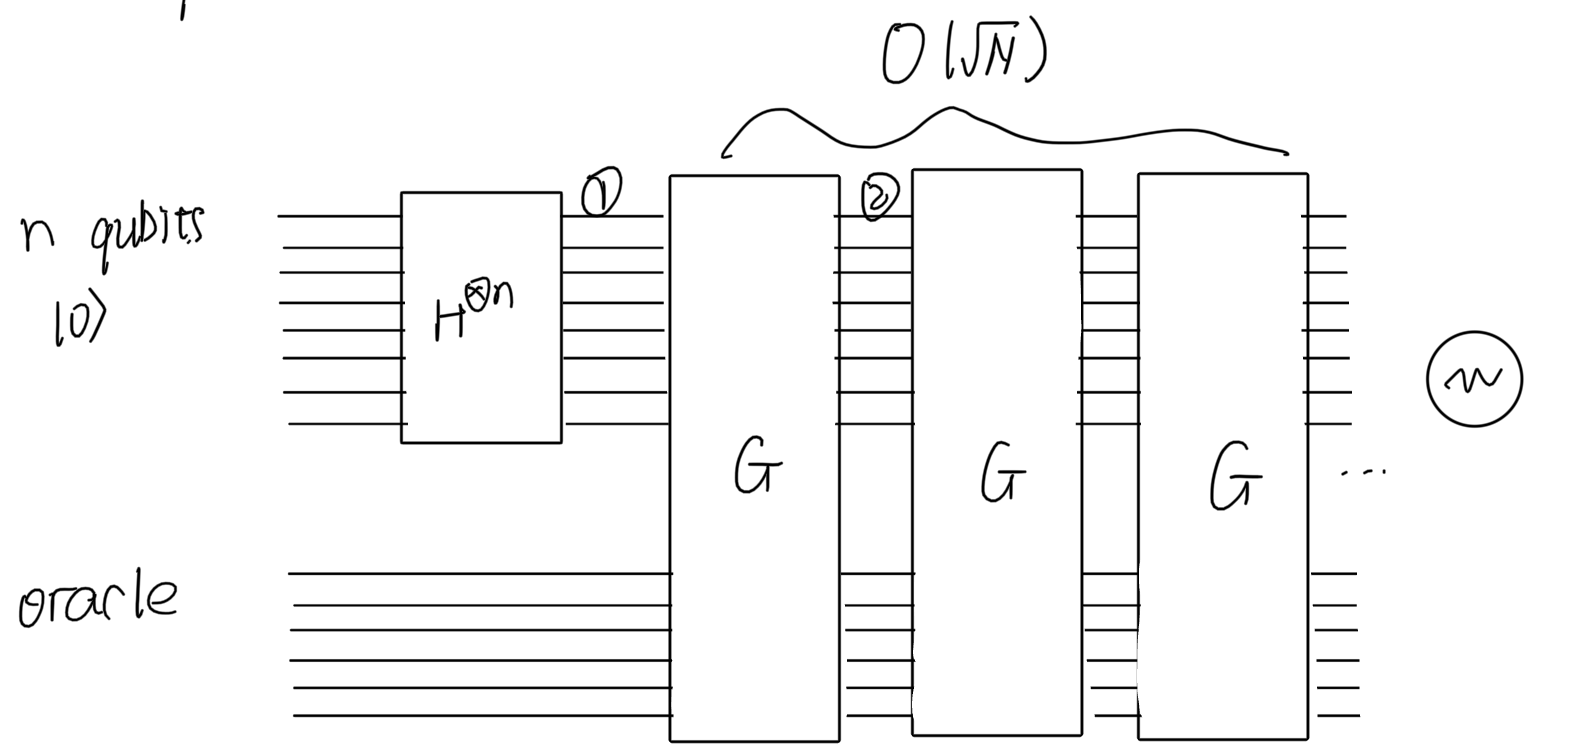 O(√N)
①
②
n qubits
|0⟩
H⊗n
G
G
G
...
oracle